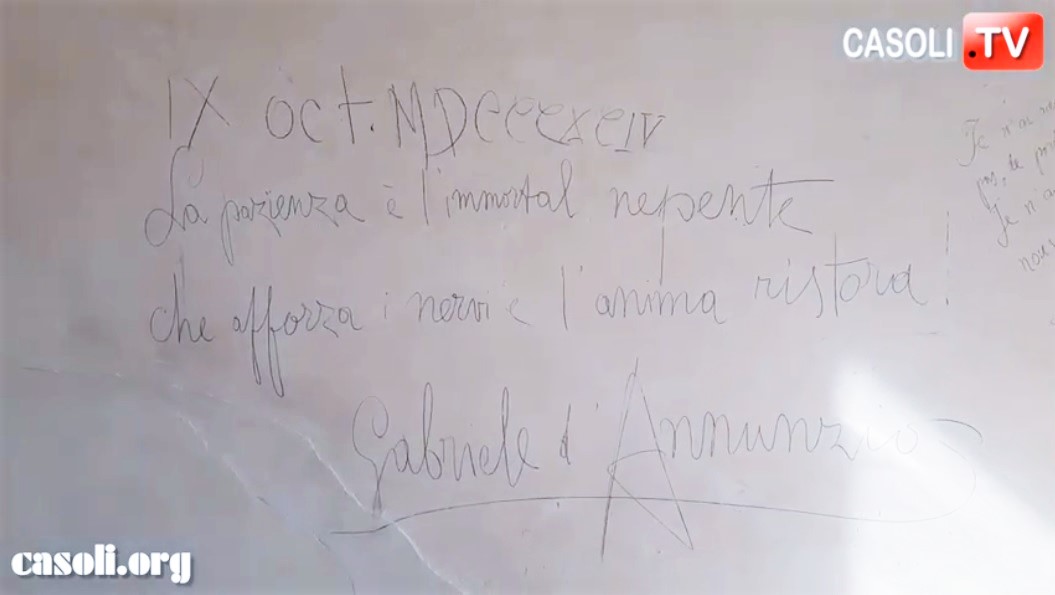 CASOLI.TV
IX oct. MDCCCXCIV
La pazienza è l'immortal nepente
che afforza i nervi e l'anima ristora!
Gabriele d'Annunzio
Je n'ai
pas, de
Je n'a
nous
casoli.org